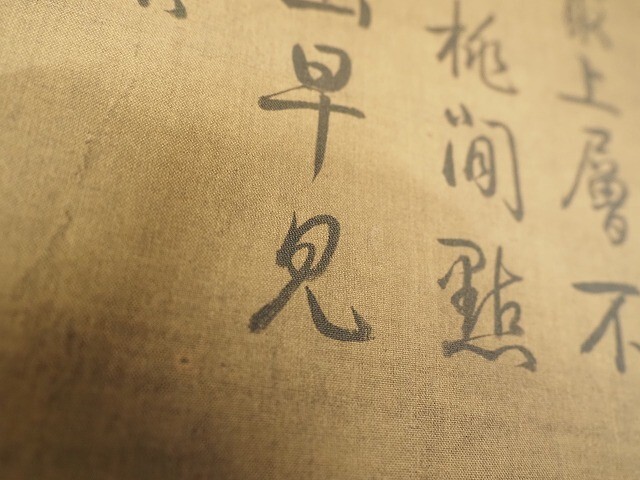 上層不
桃間點
早見